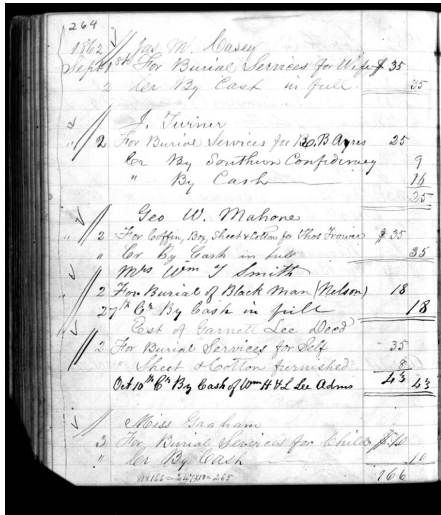 264
1862 Jas M. Casey
Sept 1st For Burial Services for Wife $ 35
2 Cr By Cash in full 35
J. Turner
" 2 For Burial Services for B Ayres 25
Cr By Southern Confideracy 9
" By Cash 16
25
Geo W. Mahone
" 2 For Coffin, Box, Sheet & Cotton for Thos $ 35
" Cr By Cash in full 35
Mrs Wm T Smith
" 2 For Burial of Black Man (Nelson) 18
27th Cr By Cash in full 18
Est of Garnett Lee Decd
" 2 For Burial Services for Self 35
" Sheet & Cotton furnished 8
Oct 10th Cr By Cash of Wm H & L Lee Adms 43 43
Miss Graham
3 For Burial Severcis for Child $ 10
" Cr By Cash 10
166